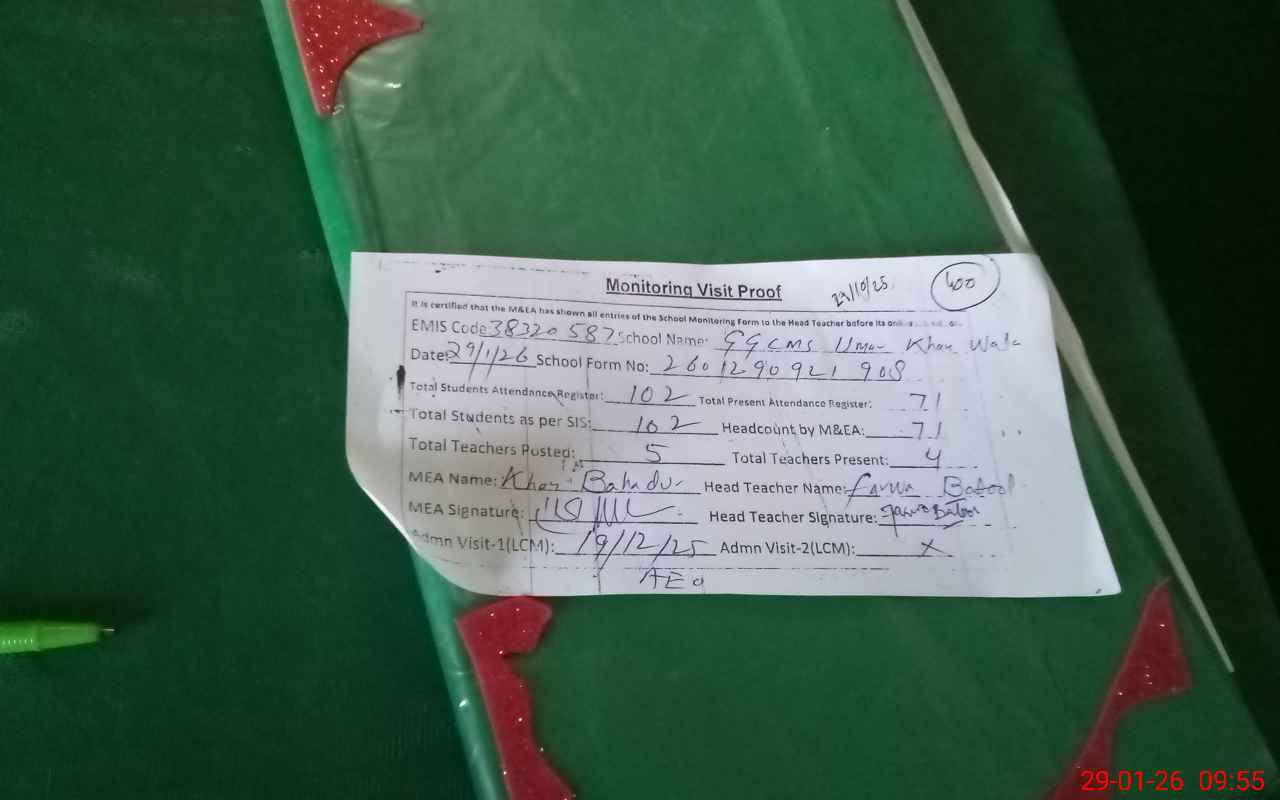 Monitoring Visit Proof 29/10/25 400
It is certified that the M&EA has shown all entries of the School Monitoring Form to the Head Teacher before its
EMIS Code 38320587 School Name: GGCMS Umar Khan Wala
Date: 29/1/26 School Form No: 2601290921908
Total Students Attendance Register: 102 Total Present Attendance Register: 71
Total Students as per SIS: 102 Headcount by M&EA: 71
Total Teachers Posted: 5 Total Teachers Present: 4
MEA Name: Khan Bahadur Head Teacher Name: Farwa Batool
MEA Signature: Head Teacher Signature: Farwa Batool
Admn Visit-1(LCM): 19/12/25 Admn Visit-2(LCM): X
AEO
29-01-26 09:55